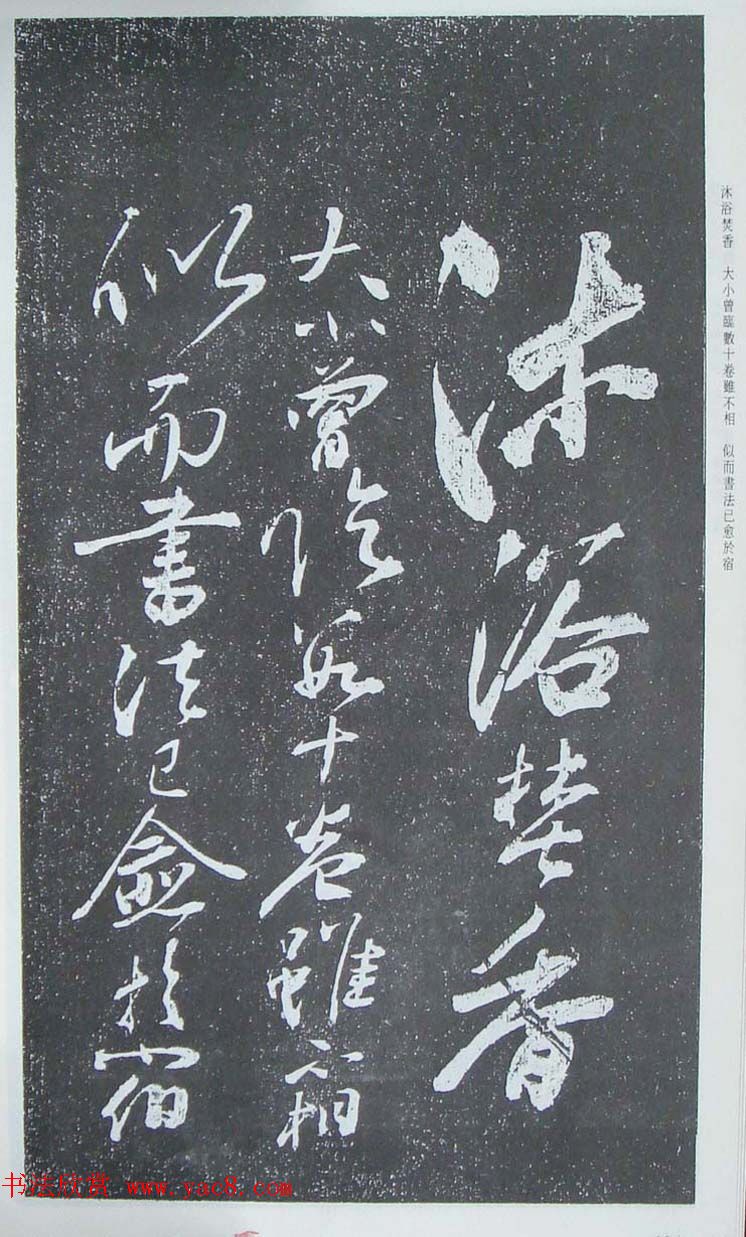 沐浴焚香
大小曾臨數十卷雖不相
似而書法已愈於宿
沐浴焚香 大小曾臨數十卷雖不相 似而書法已愈於宿
书法欣赏 www.yac8.com